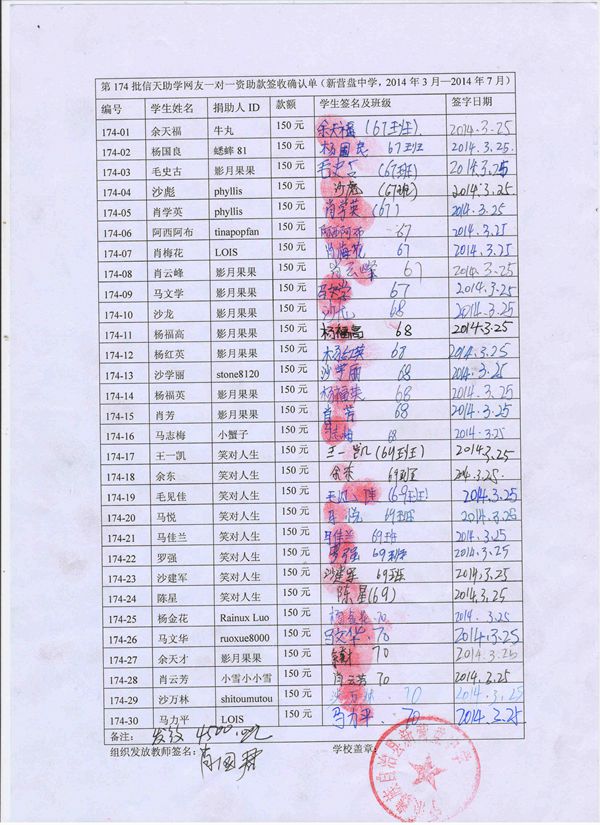 第 174 批信天助学网友一对一资助款签收确认单（新营盘中学，2014 年 3 月—2014 年 7 月）
编号 学生姓名 捐助人 ID 款额 学生签名及班级 签字日期
174-01 余天福 牛丸 150 元 余天福（67班） 2014.3.25
174-02 杨国良 蟋蟀 81 150 元 67班 2014.3.25.
174-03 毛史古 影月果果 150 元 毛史古（67班） 2014.3.25
174-04 沙彪 phyllis 150 元 沙彪（67班） 2014.3.25
174-05 肖学英 phyllis 150 元 肖学英（67） 2014.3.25
174-06 阿西阿布 tinapopfan 150 元 阿西阿布 67 2014.3.25
174-07 肖梅花 LOIS 150 元 肖梅花 67 2014.3.25
174-08 肖云峰 影月果果 150 元 肖云峰 67 2014.3.25
174-09 马文学 影月果果 150 元 马文学 67 2014.3.25
174-10 沙龙 影月果果 150 元 沙龙 68 2014.3.25
174-11 杨福高 影月果果 150 元 杨福高 68 2014.3.25
174-12 杨红英 影月果果 150 元 杨红英 67 2014.3.25
174-13 沙学丽 stone8120 150 元 沙学丽 68 2014.3.25
174-14 杨福英 影月果果 150 元 杨福英 68 2014.3.25
174-15 肖芳 影月果果 150 元 肖芳 68 2014.3.25
174-16 马志梅 小蟹子 150 元 马志梅 68 2014.3.25
174-17 王一凯 笑对人生 150 元 王一凯（69班） 2014.3.25
174-18 余东 笑对人生 150 元 余东 69班 2014.3.25
174-19 毛见佳 笑对人生 150 元 毛见佳（69班） 2014.3.25
174-20 马悦 笑对人生 150 元 马悦 69班 2014.3.25
174-21 马佳兰 笑对人生 150 元 马佳兰 69班 2014.3.25
174-22 罗强 笑对人生 150 元 罗强 69班 2014.3.25
174-23 沙建军 笑对人生 150 元 沙建军 69班 2014.3.25
174-24 陈星 笑对人生 150 元 陈星（69） 2014.3.25
174-25 杨金花 Rainux Luo 150 元 杨金花 70 2014.3.25
174-26 马文华 ruoxue8000 150 元 马文华 70 2014.3.25
174-27 余天才 影月果果 150 元 70 2014.3.25
174-28 肖云芳 小雪小小雪 150 元 肖云芳 70 2014.3.25
174-29 沙万林 shitoumutou 150 元 沙万林 70 2014.3.25
174-30 马力平 LOIS 150 元 马力平 70 2014.3.25
备注： 发放 4500.元
组织发放教师签名： 肖国君 学校盖章：
族自治县新营盘中学